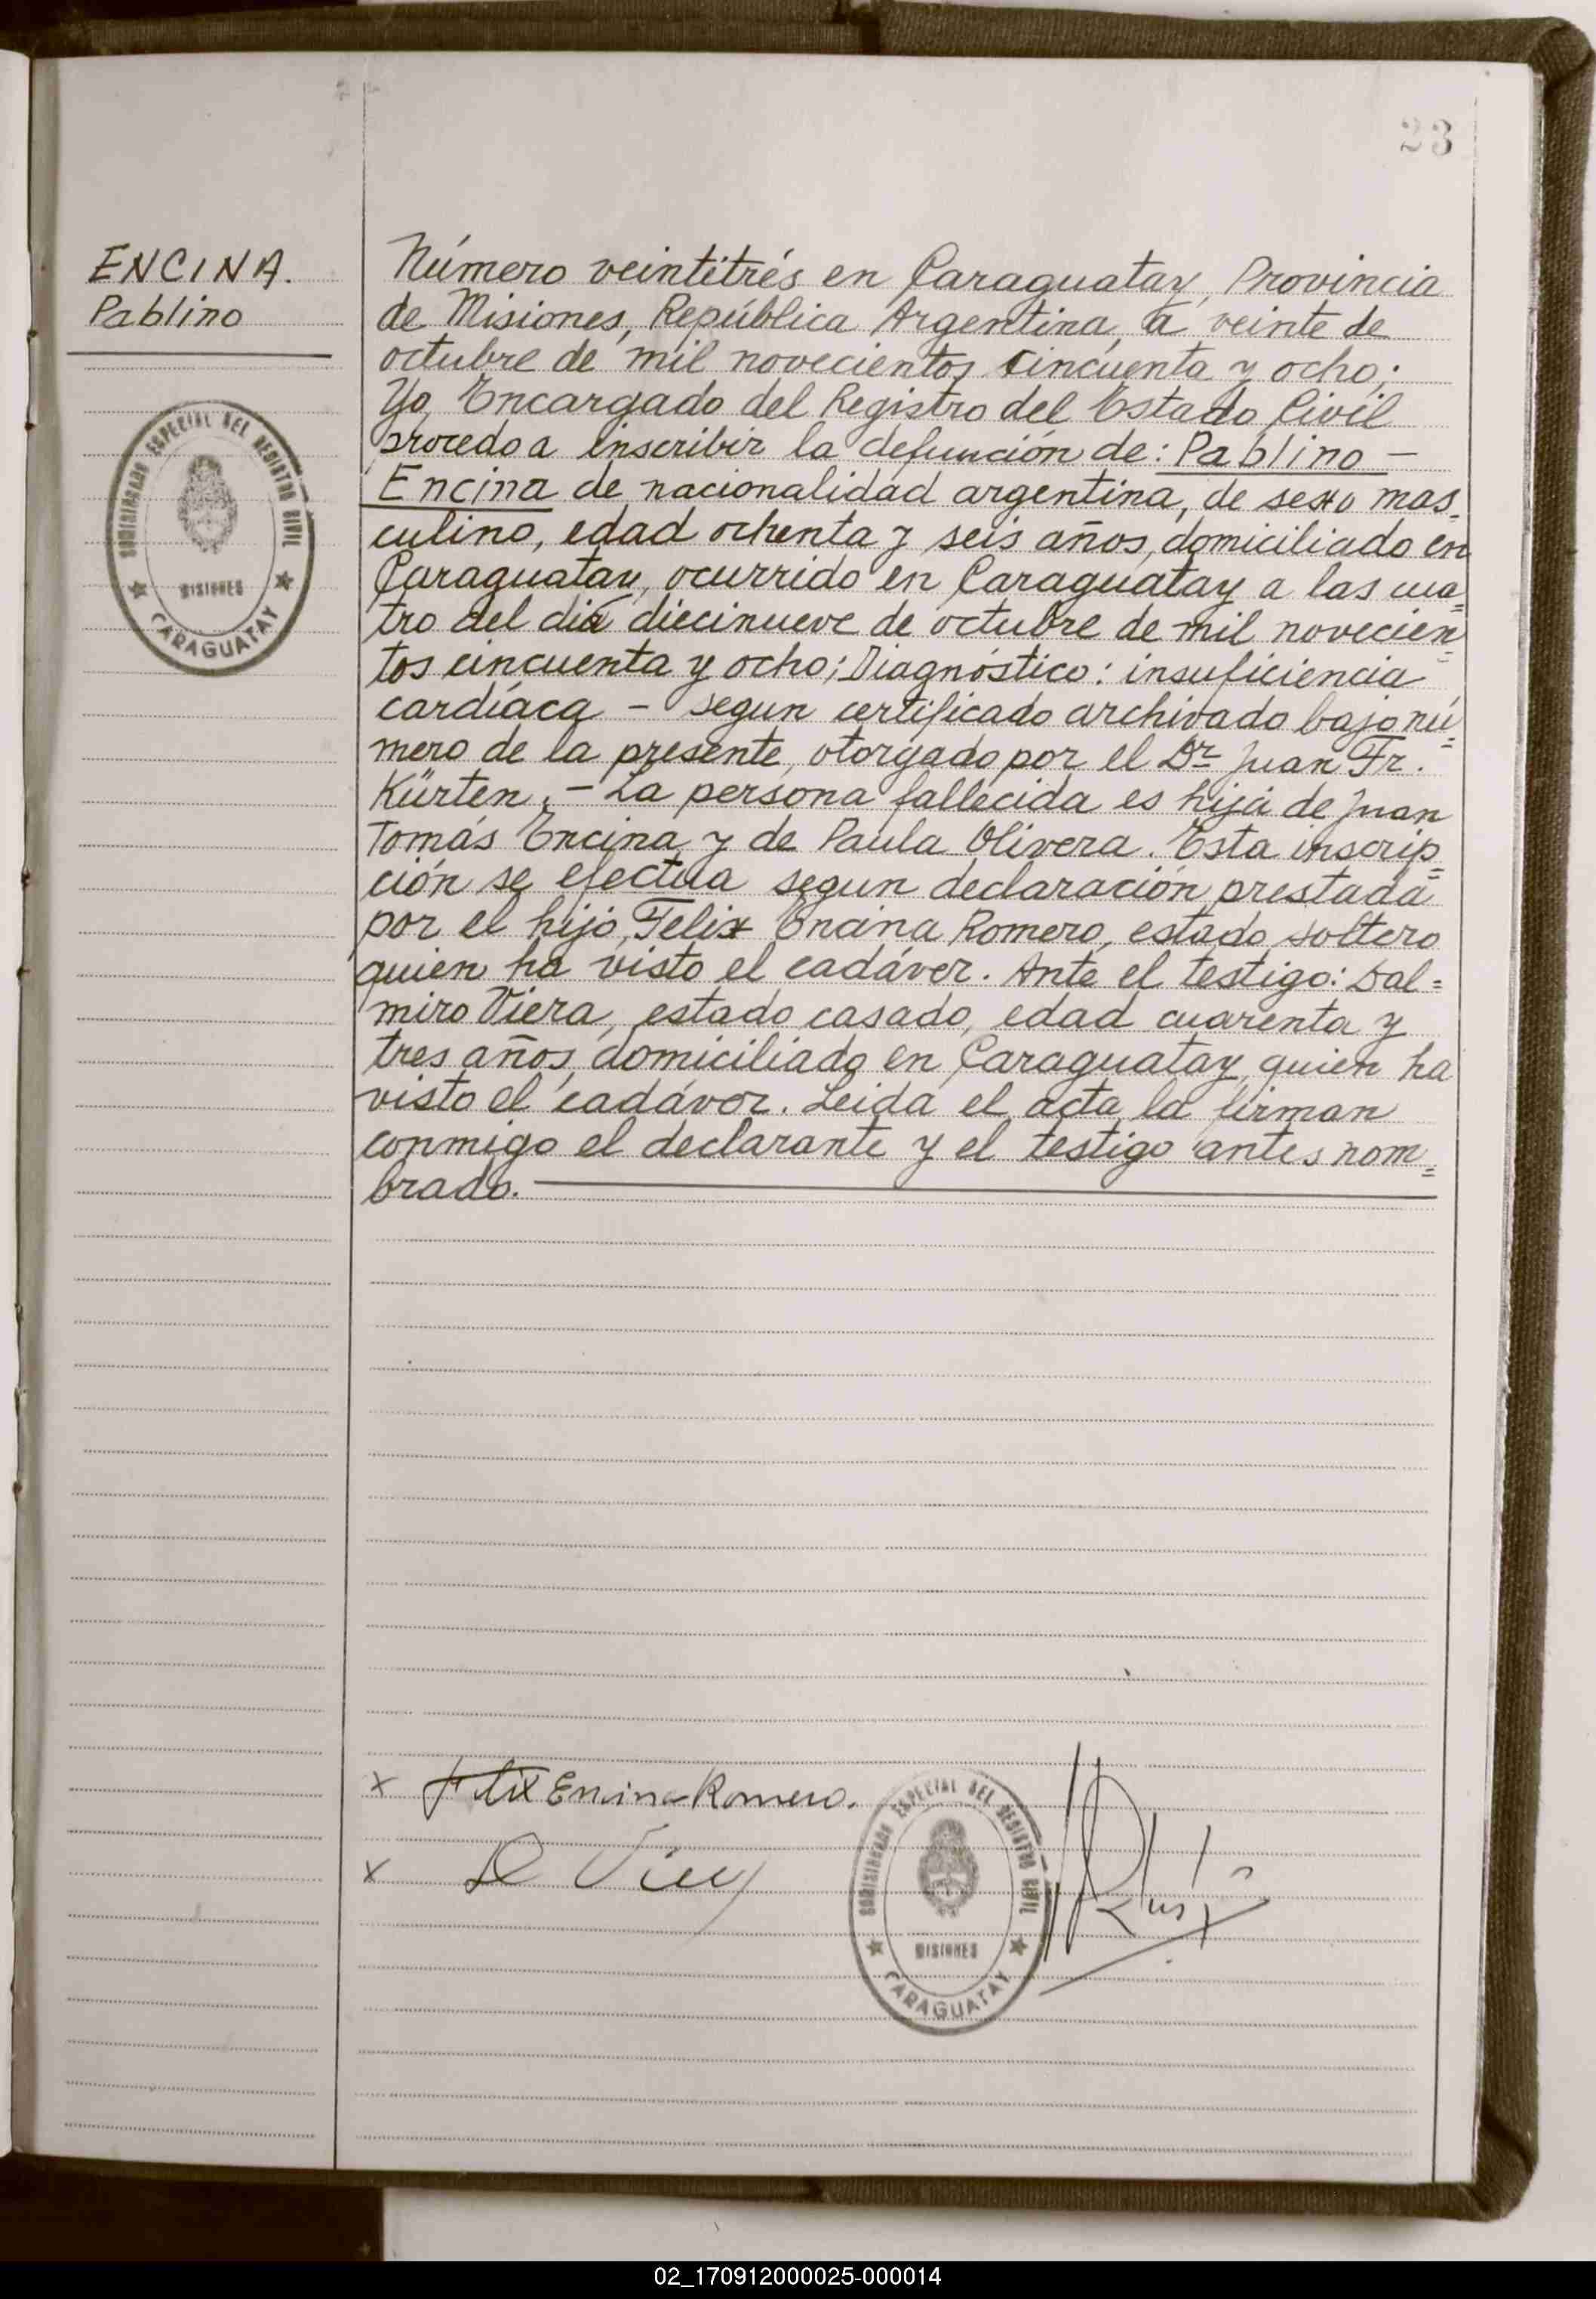 23
ENCINA.
Pablino
COMISIONADO ESPECIAL DEL REGISTRO CIVIL
MISIONES
CARAGUATAY
Número veintitrés en Caraguatay, Provincia
de Misiones, República Argentina, a veinte de
octubre de mil novecientos cincuenta y ocho;
Yo, Encargado del Registro del Estado Civil
procedo a inscribir la defunción de: Pablino –
Encina de nacionalidad argentina, de sexo mas=
culino, edad ochenta y seis años, domiciliado en
Caraguatay, ocurrido en Caraguatay a las cua=
tro del día diecinueve de octubre de mil novecien=
tos cincuenta y ocho; Diagnóstico: insuficiencia
cardíaca – segun certificado archivado bajo nú=
mero de la presente, otorgado por el Dr Juan Fr.
Kürten. – La persona fallecida es hija de Juan
Tomás Encina y de Paula Olivera. Esta inscrip=
ción se efectúa segun declaración prestada
por el hijo, Felix Encina Romero, estado soltero
quien ha visto el cadáver. Ante el testigo: Dal=
miro Viera, estado casado, edad cuarenta y
tres años, domiciliado en Caraguatay, quien ha
visto el cadáver. Leida el acta la firman
conmigo el declarante y el testigo antes nom=
brado.
x Felix Encina Romero.
x D Viera
COMISIONADO ESPECIAL DEL REGISTRO CIVIL
MISIONES
CARAGUATAY
02_170912000025-000014